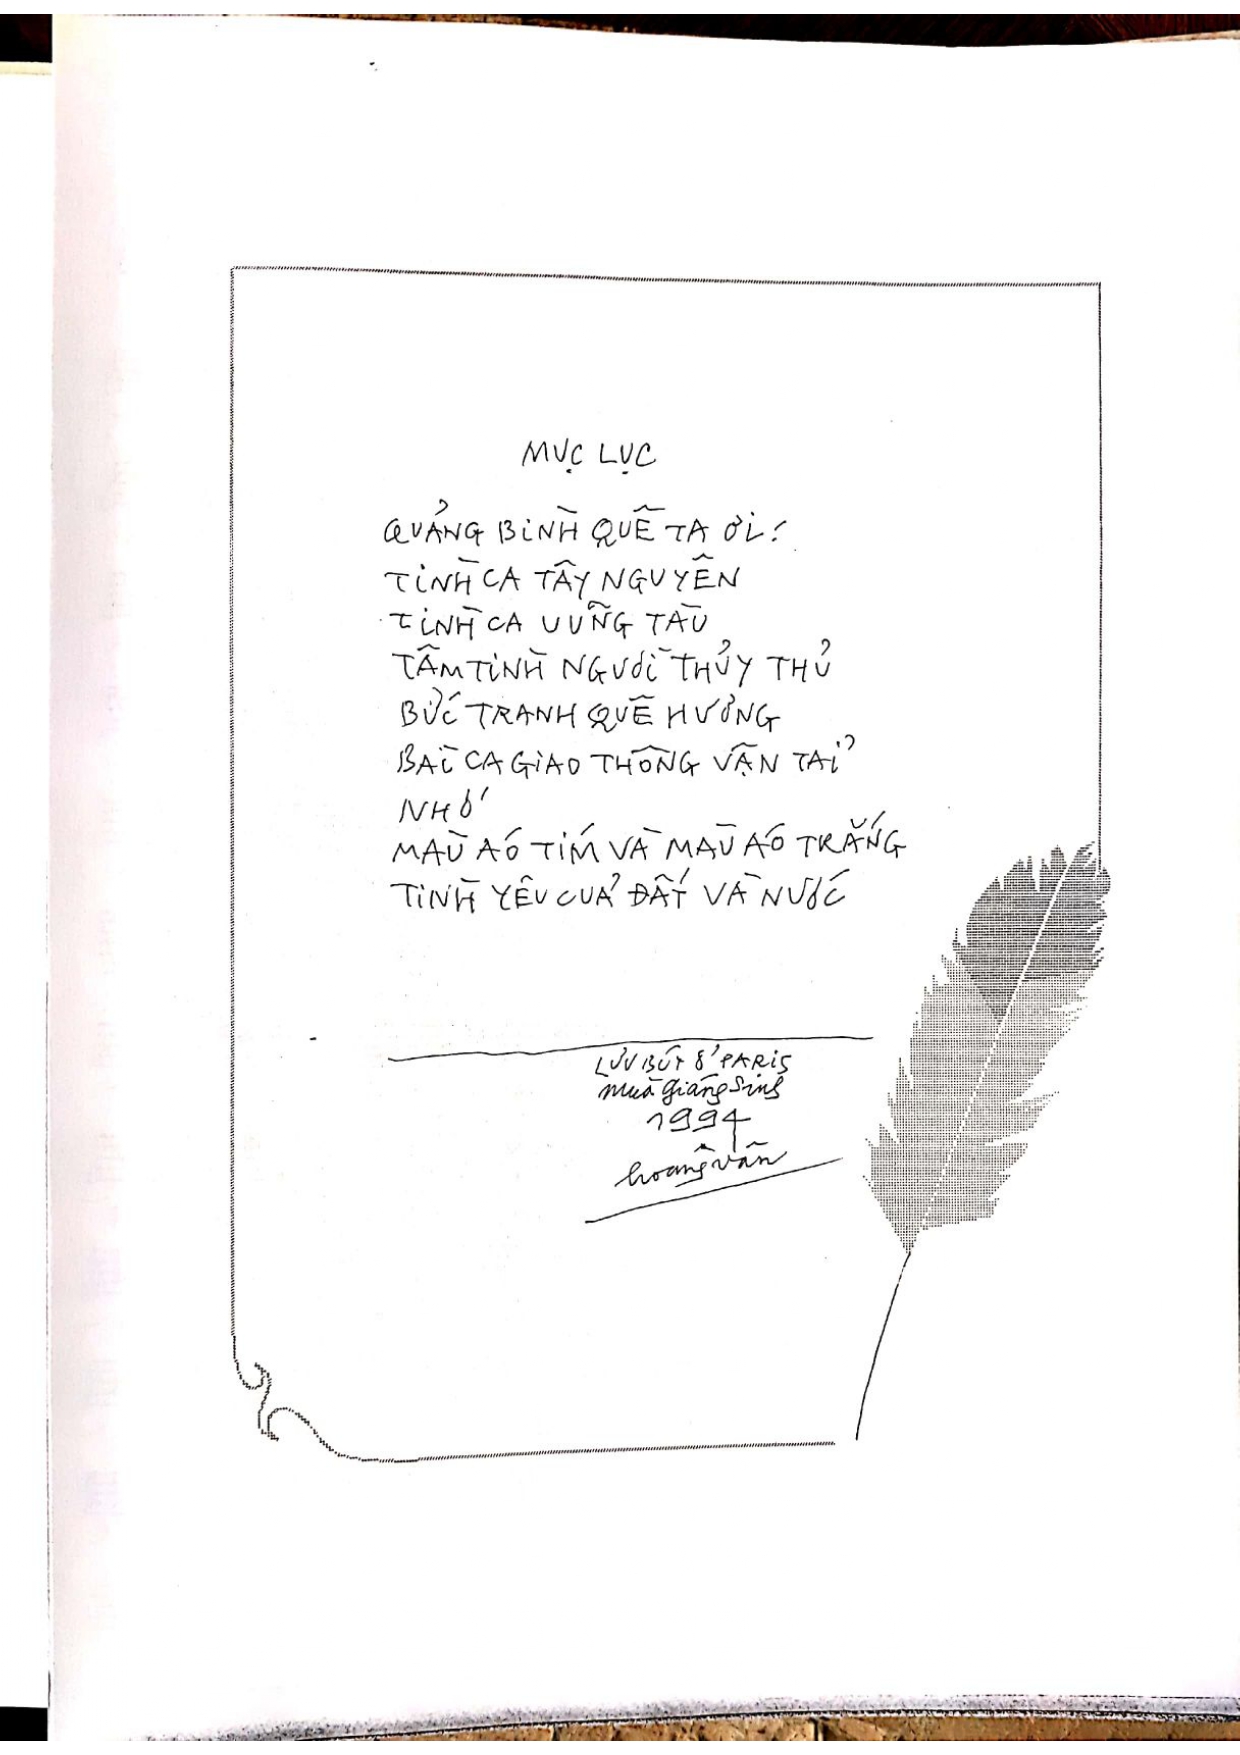 MỤC LỤC
QUẢNG BÌNH QUÊ TA ƠI!
TÌNH CA TÂY NGUYÊN
TÌNH CA VŨNG TÀU
TÂM TÌNH NGƯỜI THỦY THỦ
BỨC TRANH QUÊ HƯƠNG
BÀI CA GIAO THÔNG VẬN TẢI
NHỚ
MÀU ÁO TÍM VÀ MÀU ÁO TRẮNG
TÌNH YÊU CỦA ĐẤT VÀ NƯỚC
LƯU BÚT Ở PARIS
mùa giáng sinh
1994
hoàng vân